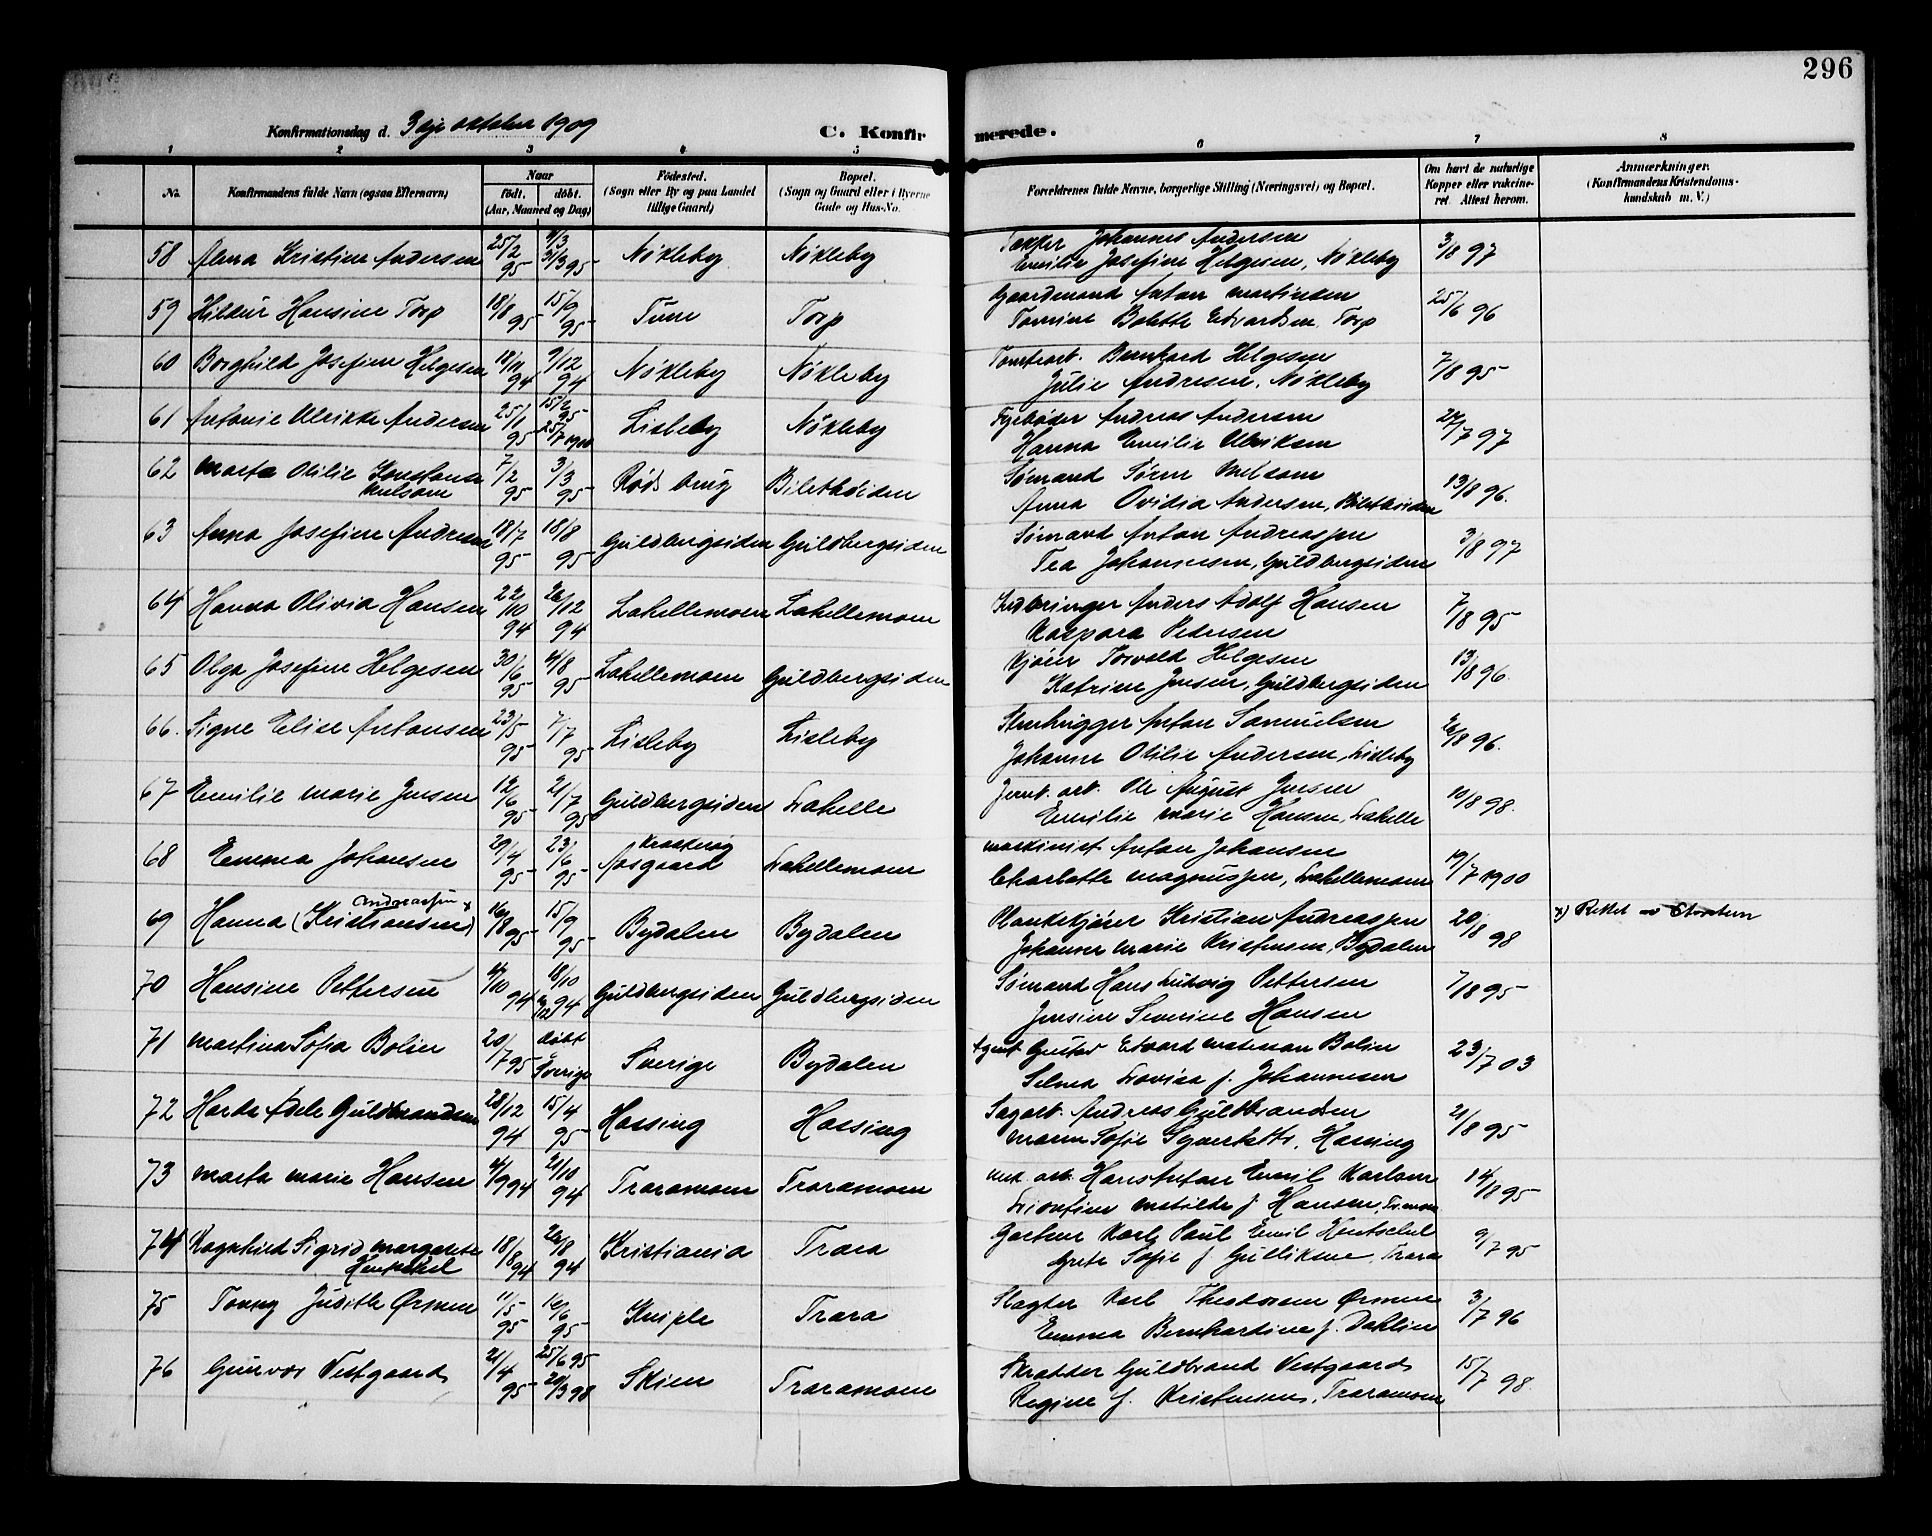 296
Konfirmationsdag d. 3dje oktober 1909
C. Konfirmerede.
1 2 3 4 5 6 7 8
No. Konfirmandens fulde Navn (ogsaa Efternavn) Naar født. døbt. (Aar, Maaned og Dag) Fødested. (Sogn eller By og paa Landet tillige Gaard) Bopæl. (Sogn og Gaard eller i Byerne Gade og Hus-No. Forældrenes fulde Navne, borgerlige Stilling (Næringsvei) og Bopæl. Om havt de naturlige Kopper eller vakcineret. Attest herom. Anmærkninger. (Konfirmandens Kristendomskundskab m. V.)
58 Anna Kristine Andersen 25/2 95 3/3 95 Nökleby Nökleby Johannes Andersen 3/8 97
Emilie Josefine Helgesen, Nökleby
59 Hildur Hansine Torp 18/8 95 15/9 95 Tune Torp Gaardmand Anton Martinsen 25/6 96
Tomine Bolette Edvardsen, Torp
60 Borghild Josefine Helgesen 18/11 94 9/12 94 Nökleby Nökleby Tomtearb. Bernhard Helgesen 7/8 95
Julie Andresen, Nökleby
61 Antonie Ulrikke Andersen 25/1 95 15/2 95 25/7 1900 Lisleby Nökleby Fyrbøder Andreas Andersen 27/7 97
Hanna Emilie Ulriksen
62 Marta Otilie Konstanse Melsom 7/2 95 3/3 95 Røds brug Biletholden Sømand Sören Melsom 13/8 96.
Anna Ovidia Andersen,
63 Anna Josefine Andresen 18/7 95 18/8 95 Guldbergsiden Guldbergsiden Sømand Anton Andreassen 3/8 97
Tea Johannesen, Guldbergsiden
64 Hanna Olivia Hansen 22/10 94 26/12 94 Lahellemoen Lahellemoen Indbringer Anders Adolf Hansen 7/8 95
Kaspara Pedersen
65 Olga Josefine Helgesen 30/6 95 4/8 95 Lahellemoen Guldbergsiden Kjører Torvald Helgesen 13/8 96.
Katrine Jensen, Guldbergsiden
66. Signe Elise Antonsen 23/5 95 7/7 95 Lisleby Lisleby Stenhugger Anton Samuelsen 26/8 96.
Johanne Otilie Andersen, Lisleby
67 Emilie Marie Jensen 12/6 95 21/7 95 Guldbergsiden Lahelle Jernb. arb. Ole August Jensen 10/8 98.
Emilie Marie Hansen, Lahelle
68 Emma Johansen 29/4 95 23/6 95 Kraakerøy Aasgaard Lahellemoen Maskinist Anton Johansen 19/7 1900
Charlotte Magnussen, Lahellemoen
69 Hanna (Kristiansen) Andreassen x 16/8 95 15/9 95 Bydalen Bydalen Plankekjører Kristian Andreassen 20/8 98 x) Rettet
Johanne Marie Kristensen, Bydalen
70 Hansine Pettersen 4/10 94 18/10 94 Guldbergsiden Guldbergsiden Sømand Hans Ludvig Pettersen 7/8 95
Jensine Severine Hansen
71 Martina Sofia Bolin 20/7 95 døbt i Sverige Sverige Bydalen Agent Gustav Edvard Bolin 23/7 03
Selma Lovisa f. Johannesen
72 Adele Guldbrandsen 28/12 94 15/4 95 Hassing Hassing Sagarb. Andreas Guldbrandsen 21/8 95
Maren Sofie, Hassing
73 Marta Marie Hansen 4/9 94 21/10 94 Traramoen Traramoen Mek. arb. Hans Anton Emil Karlsen 14/8 95
Matilde f. Hansen, Tr.moen
74 Ragnhild Sigrid Margarete Hentschel 18/8 94 26/8 94 Kristiania Trara Gartner Karl Paul Emil Hentschel 9/7 95
Grete Sofie f. Gulliksen, Trara
75 Tonny Judith Ørmen 11/5 95 16/6 95 Kniple Trara Slagter Karl Theodorsen Ørmen 3/7 96
Emma Bernhardine f. Dahlin
76 Gunvor Vestgaard 21/4 95 25/6 95 20/3 98 Skien Traramoen Skrædder Guldbrand Vestgaard 15/7 98.
Regine f. Kristensen, Traramoen